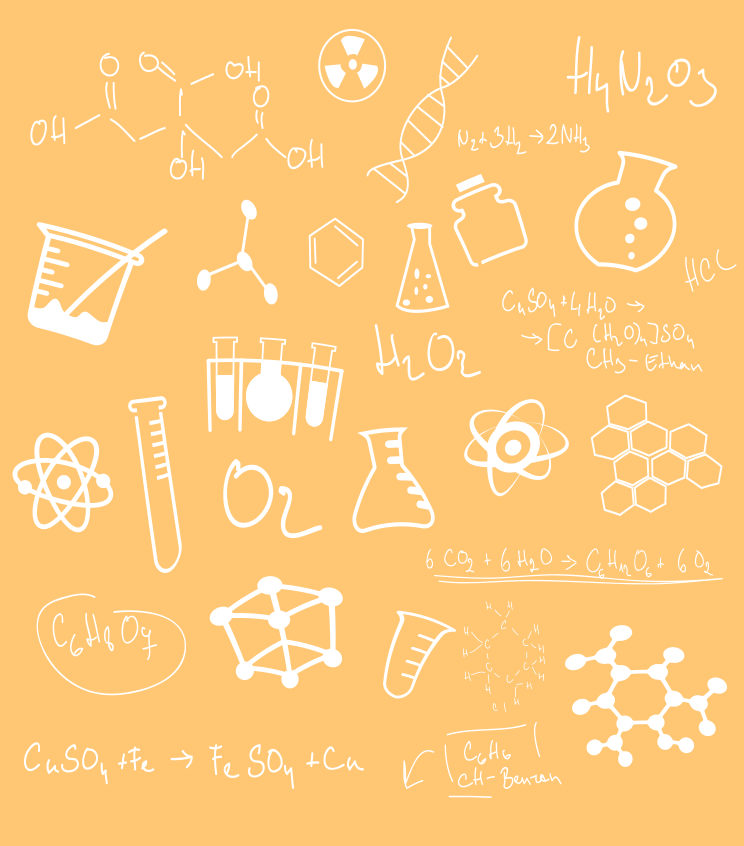 O O OH
O
OH
OH
OH
H4N2O3
N2+3H2→2NH3
HCl
CuSO4+4H2O→
→[C (H2O)4]SO4
CH3-Ethan
H2O2
O2
6CO2+6H2O→C6H12O6+6O2
C6H8O7
CuSO4+Fe→FeSO4+Cu
C6H6
CH-Benzan